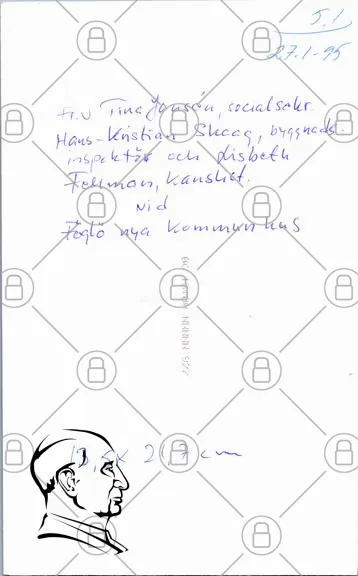 5.1
27.1-95
fr.v Tina Jonsén, socialsekr.
Hans-Kristian Skaag, byggnads-
inspektör och Lisbeth
Fellman, kanslist.
vid
Föglö nya kommunhus
13,5x 21,7 cm